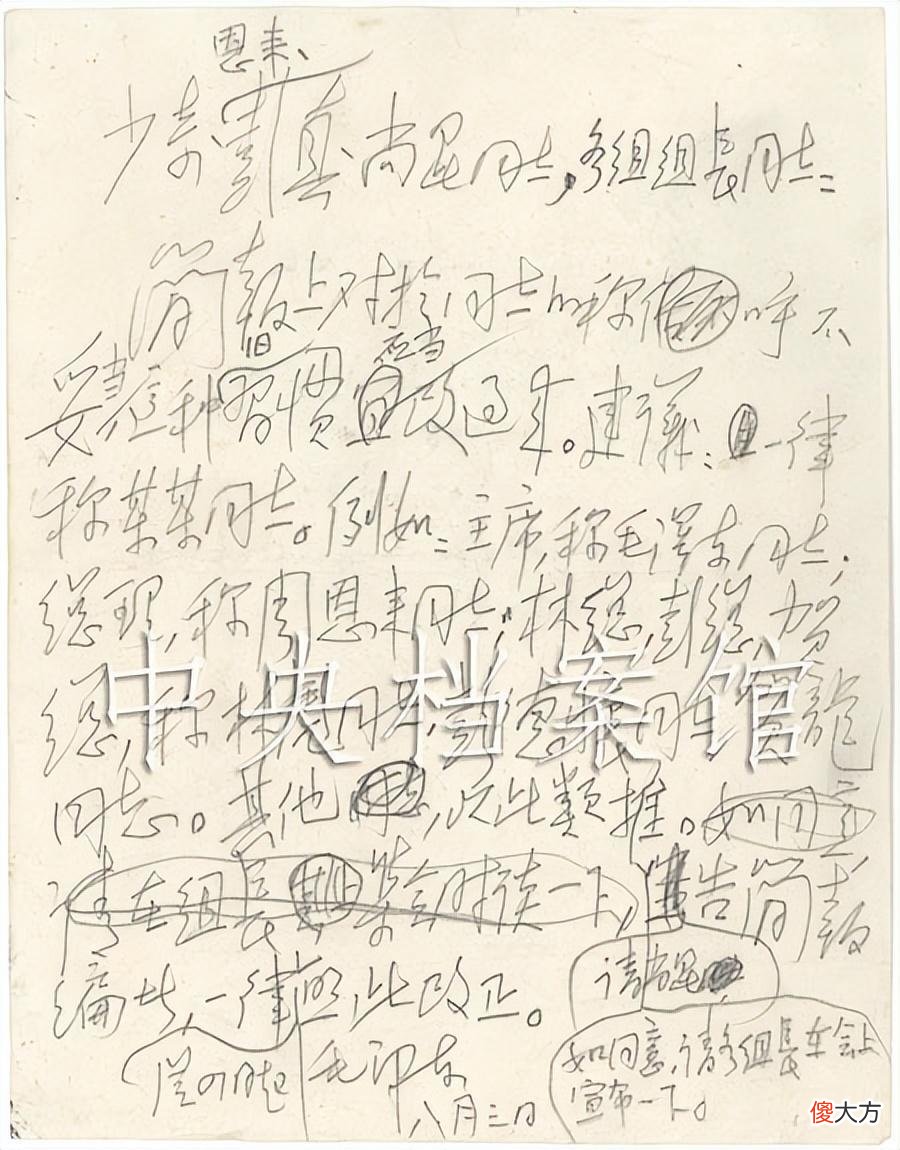 恩来、
少奇 彭真 尚昆同志，各组组长同志：
简报上对于同志的称呼不
妥当，这种旧习惯应当改过来。建议：一律
称某某同志。例如：主席，称毛泽东同志，
总理，称周恩来同志，林总，彭总，贺
总，称林彪同志，彭德怀同志，贺龙
同志。其他，以此类推。如同意
请在组长 集会时读一下，告简报
编 一律照此改正。
请尚昆
如同意，请各组长在会上
宣布一下。
毛泽东
八月三日
中央档案馆
傻大方